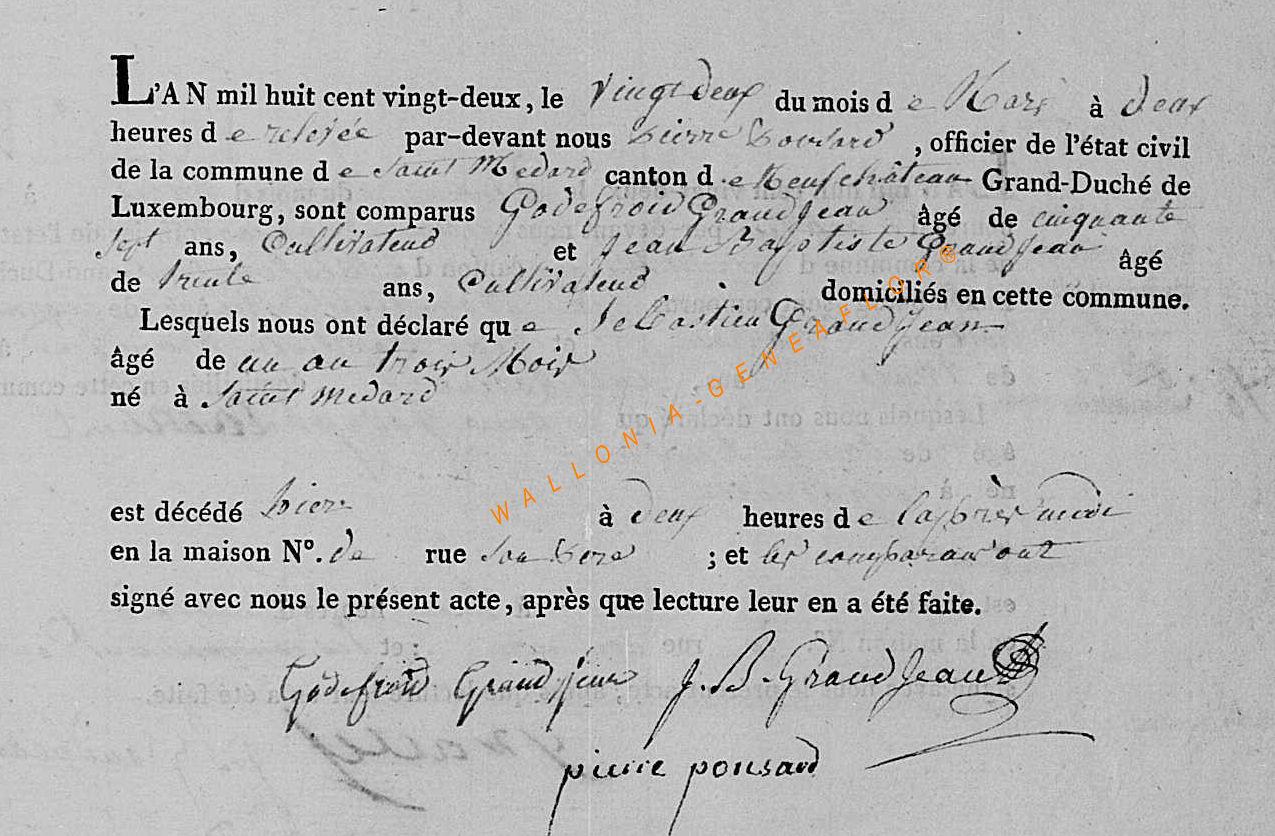 L'AN mil huit cent vingt-deux, le vingt deux du mois d e Mars à deux
heures d e relevée par-devant nous pierre ponsard , officier de l'état civil
de la commune d e Saint Medard canton d e Neufchâteau Grand-Duché de
Luxembourg, sont comparus Godefroid Grandjean âgé de cinquante
sept ans, Cultivateur et Jean Baptiste Grandjean âgé
de trente ans, Cultivateur domiciliés en cette commune.
Lesquels nous ont déclaré qu e Sebastien Grandjean
âgé de un an trois Mois
né à Saint Medard
est décédé hier à deux heures d e l'après midi
en la maison N°. de rue son pere ; et les comparans ont
signé avec nous le présent acte, après que lecture leur en a été faite.
Godefroid Grandjean J. B. Grandjean
pierre ponsard
WALLONIA-GENEAFLOR®